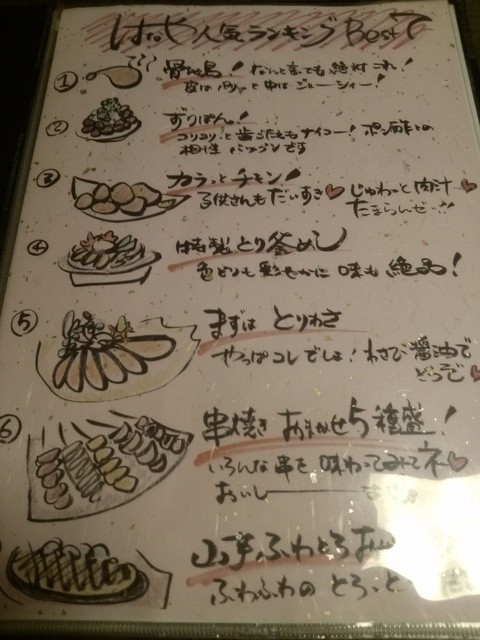 はなや人気ランキング Best 7
① 骨付鳥! なんと言っても絶対コレ!
皮はパリッと中はジューシィー!
② ずりぽん!
コリコリっと歯ごたえもナイコー! ポン酢との
相性バツグンです
③ カラっとチキン!
子供さんもだいすき♥ じゅわっと肉汁♥
たまらんぜー!!
④ はな製とり釜めし
色どりも彩やかに味も絶品!
⑤ まずは とりわさ
やっぱコレでしょ! わさび醤油で
どうぞ♥
⑥ 串焼き おまかせ5種盛!
いろんな串を味わってみてネ♥
おいしー
山芋ふわとろ
ふわふわの とろっと